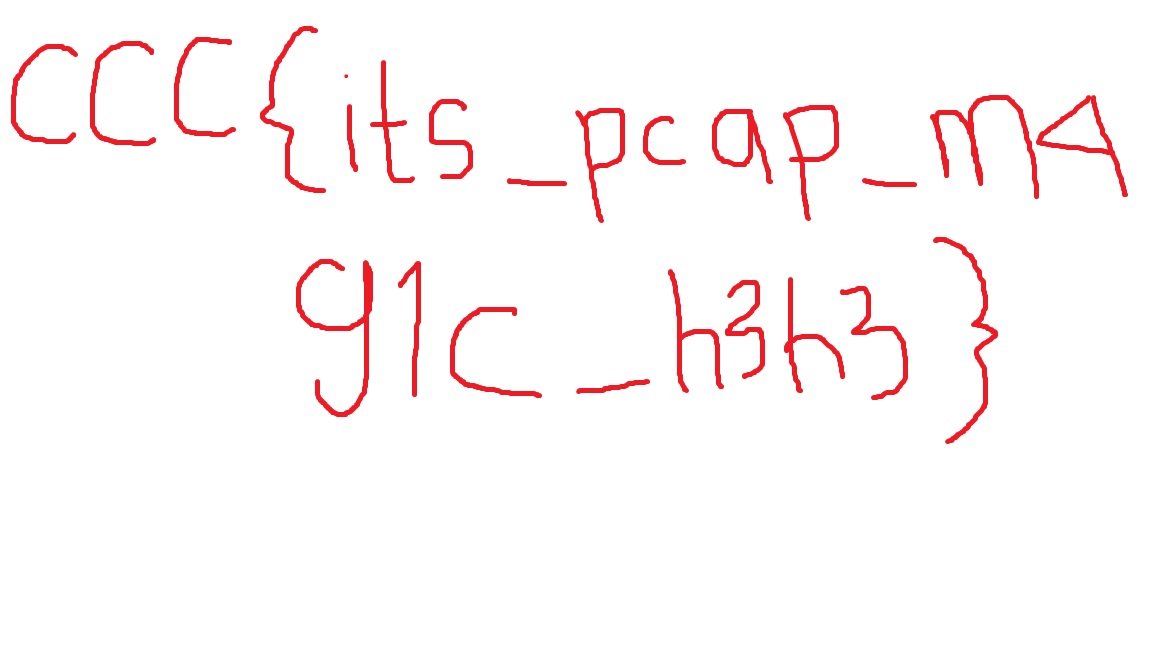 CCC{its_pcap_m4
g1c_h3h3}